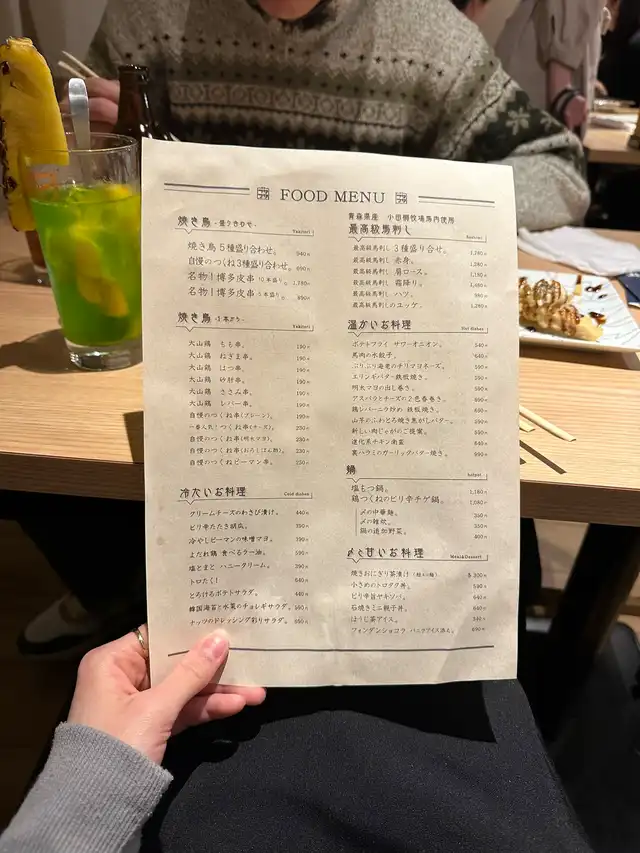 FOOD MENU
焼き鳥 -盛り合わせ-
Yakitori
焼き鳥5種盛り合わせ。 940円
自慢のつくね3種盛り合わせ。 690円
名物！博多皮串 10本盛り。 1,780円
名物！博多皮串 5本盛り。 890円
焼き鳥 -1本から-
Yakitori
大山鶏 もも串。 190円
大山鶏 ねぎま串。 190円
大山鶏 はつ串。 190円
大山鶏 砂肝串。 190円
大山鶏 ささみ串。 190円
大山鶏 レバー串。 190円
自慢のつくね串(プレーン)。 190円
一番人気！つくね串(チーズ)。 230円
自慢のつくね串(明太マヨ)。 230円
自慢のつくね串(おろしぽん酢)。 230円
自慢のつくねピーマン串。 230円
冷たいお料理
Cold dishes
クリームチーズのわさび漬け。 440円
ピリ辛たたき胡瓜。 390円
冷やしピーマンの味噌マヨ。 390円
よだれ鶏 食べるラー油。 590円
塩とまと ハニークリーム。 390円
トロたく！ 640円
とろけるポテトサラダ。 440円
韓国海苔と水菜のチョレギサラダ。 580円
ナッツのドレッシング彩りサラダ。 690円
青森県産 小田桐牧場馬肉使用
最高級馬刺し
最高級馬刺し 3種盛り合せ。
最高級馬刺し 赤身。
最高級馬刺し 肩ロース。
最高級馬刺し 霜降り。
最高級馬刺し ハツ。 980円
最高級馬刺しのユッケ。
温かいお料理
Hot dishes
ポテトフライ サワーオニオン。 540円
馬肉の水餃子。 640円
ぷりぷり海老のチリマヨネーズ。
エリンギバター鉄板焼き。
明太マヨの出し巻き。
アスパラとチーズの2色春巻き。
鶏レバーニラ炒め 鉄板焼き。
山芋のふわとろ焼き焦がしバター。
新しい肉じゃがのご提案。
進化系チキン南蛮 840円
馬ハラミのガーリックバター焼き。 890円
鍋
hotpot
塩もつ鍋。 1,180円
鶏つくねのピリ辛チゲ鍋。 1,080円
〆の中華麺。 350円
〆の雑炊。 350円
鍋の追加野菜。 400円
〆と甘いお料理
Meal&Dessert
焼きおにぎり茶漬け
小さめのトロタク丼。 590円
ピリ辛旨ヤキソバ。 640円
石焼きミニ親子丼。 640円
ほうじ茶アイス。
フォンダンショコラ バニラアイス添え。 690円